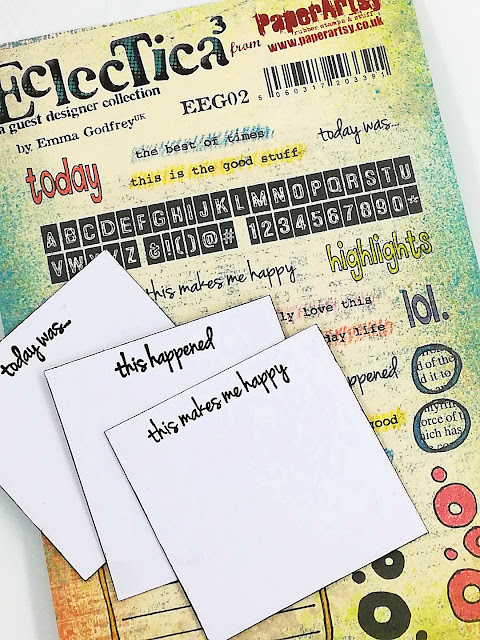 Eclectica³
from
PaperArtsy
rubber stamps & stuff
www.paperartsy.co.uk
a guest designer collection
by Emma Godfrey UK
EEG02
5 060317 203395
today
the best of times
this is the good stuff
today was...
ABCDEFGHIJKLMNOPQRSTU
VWXYZ &!()@# 1234567890*
this makes me happy
highlights
ly love this
day life
lol.
happened
good
d of the
d it to
force of t
hich has
today was...
this happened
this makes me happy